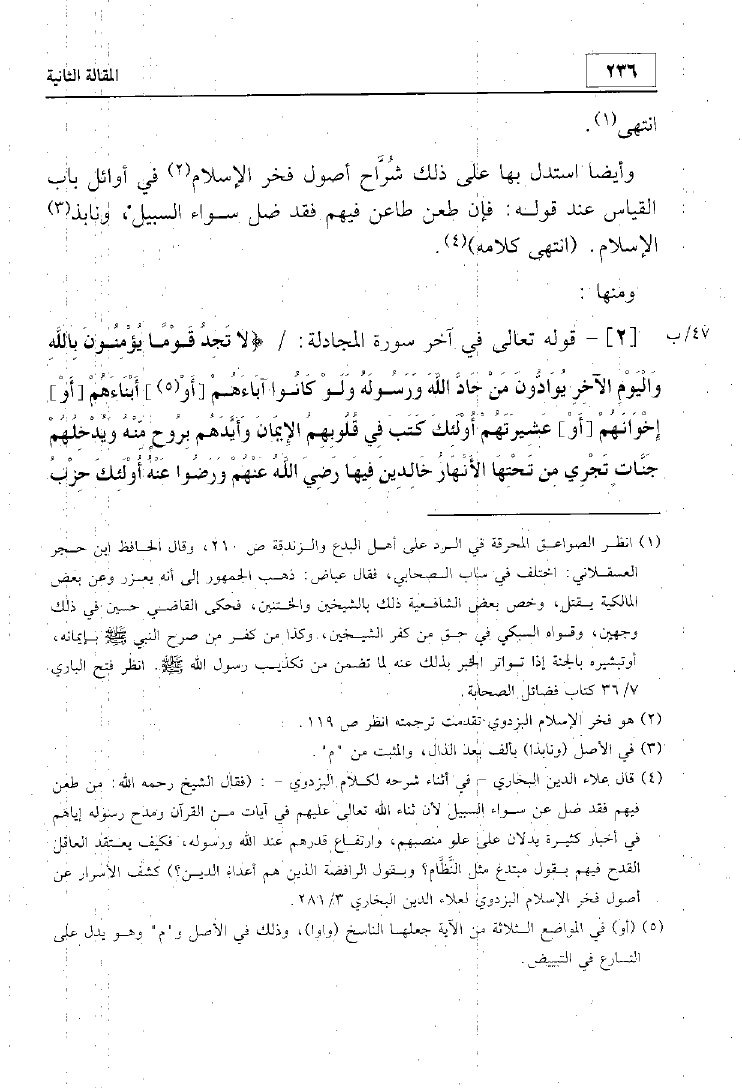 ٢٣٦ المقالة الثانية
انتهى(١).
وأيضا استدل بها على ذلك شُرَّاح أصول فخر الإسلام(٢) في أوائل باب
القياس عند قولـه: فإن طعن طاعن فيهم فقد ضل سـواء السبيل، ونابذ(٣)
الإسلام. (انتهى كلامه)(٤).
ومنها :
٤٧/ب [٢] – قوله تعالى في آخر سورة المجادلة: / ﴿لا تَجِدُ قَوْمًا يُؤْمِنُونَ بِاللَّهِ
وَالْيَوْمِ الآخِرِ يُوَادُّونَ مَنْ حَادَّ اللَّهَ وَرَسُولَهُ وَلَوْ كَانُوا آبَاءَهُمْ [أَوْ(٥)] أَبْنَاءَهُمْ [أَوْ]
إِخْوَانَهُمْ [أَوْ] عَشِيرَتَهُمْ أُوْلَئِكَ كَتَبَ فِي قُلُوبِهِمُ الإِيمَانَ وَأَيَّدَهُم بِرُوحٍ مِّنْهُ وَيُدْخِلُهُمْ
جَنَّاتٍ تَجْرِي مِن تَحْتِهَا الأَنْهَارُ خَالِدِينَ فِيهَا رَضِيَ اللَّهُ عَنْهُمْ وَرَضُوا عَنْهُ أُوْلَئِكَ حِزْبُ
(١) انظر الصواعق المحرقة في الرد على أهل البدع والزندقة ص ٢١٠، وقال الحافظ ابن حجر
العسقلاني: اختلف في ساب الصحابي، فقال عياض: ذهب الجمهور إلى أنه يعزر وعن بعض
المالكية يقتل، وخص بعض الشافعية ذلك بالشيخين والختنين، فحكى القاضي حسين في ذلك
وجهين، وقواه السبكي في حق من كفر الشيخين، وكذا من كفر من صرح النبي ﷺ بإيمانه،
أوتبشيره بالجنة إذا تواتر الخبر بذلك عنه لما تضمن من تكذيب رسول الله ﷺ. انظر فتح الباري
٣٦/٧ كتاب فضائل الصحابة.
(٢) هو فخر الإسلام البزدوي تقدمت ترجمته انظر ص ١١٩.
(٣) في الأصل (ونابذا) بألف بعد الذال، والمثبت من "م".
(٤) قال علاء الدين البخاري – في أثناء شرحه لكلام البزدوي – : (فقال الشيخ رحمه الله: من طعن
فيهم فقد ضل عن سواء السبيل لأن ثناء الله تعالى عليهم في آيات من القرآن ومدح رسوله إياهم
في أخبار كثيرة يدلان على علو منصبهم، وارتفاع قدرهم عند الله ورسوله، فكيف يعتقد العاقل
القدح فيهم بقول مبتدع مثل النَّظَّام؟ وبقول الرافضة الذين هم أعداء الدين؟) كشف الأسرار عن
أصول فخر الإسلام البزدوي لعلاء الدين البخاري ٢٨١/٣.
(٥) (أو) في المواضع الثلاثة من الآية جعلها الناسخ (واوا)، وذلك في الأصل و"م" وهو يدل على
التسارع في التبييض.